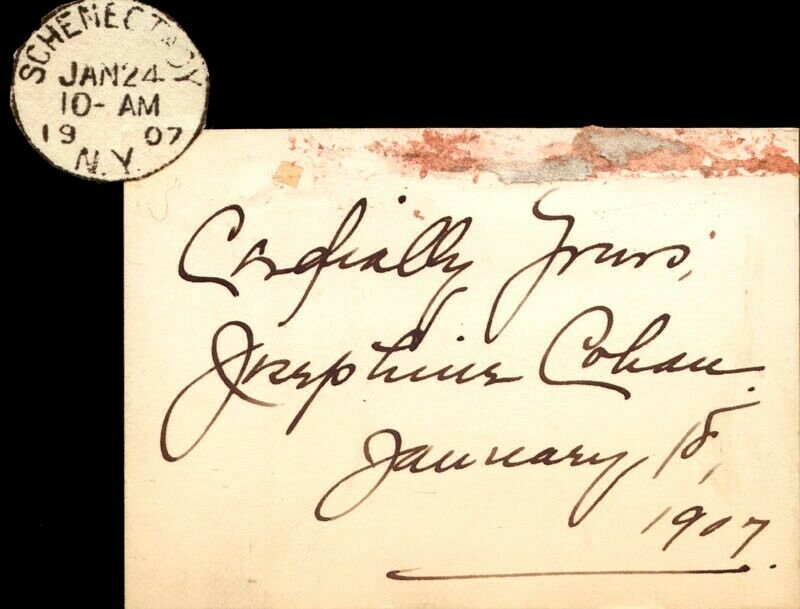 SCHENECTADY
JAN 24
10- AM
19 07
N.Y.
Cordially Yours,
Josephine Cohan.
January 18,
1907.